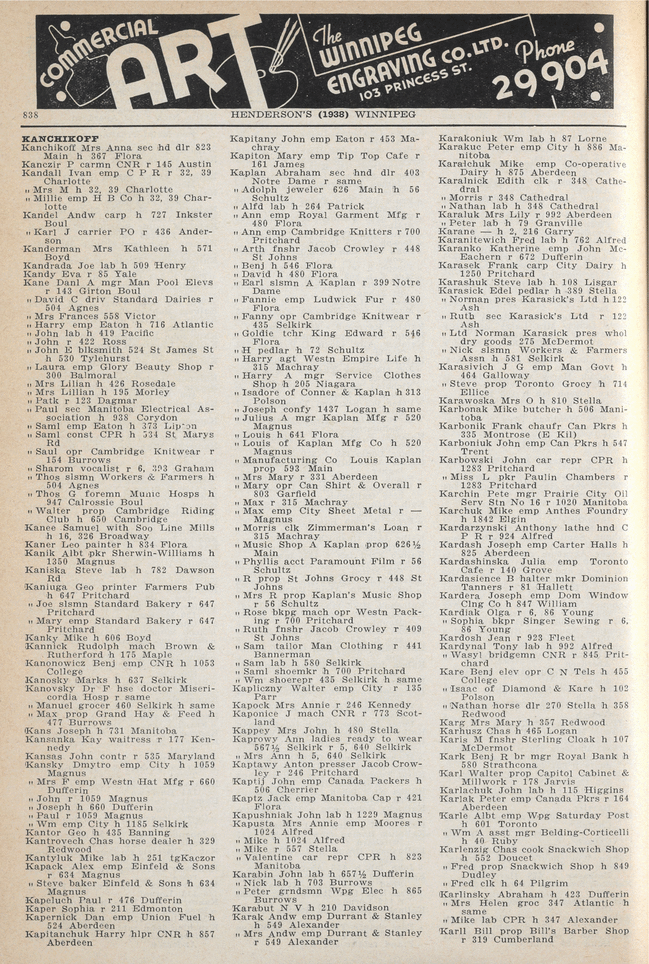 COMMERCIAL
ART
The
WINNIPEG
ENGRAVING CO. LTD.
103 PRINCESS ST.
Phone
29 904
838
HENDERSON'S (1938) WINNIPEG
KANCHIKOFF
Kanchikoff Mrs Anna sec hd dlr 823
Main h 367 Flora
Kanczir P carmn CNR r 145 Austin
Kandall Ivan emp C P R r 32, 39
Charlotte
„ Mrs M h 32, 39 Charlotte
„ Millie emp H B Co h 32, 39 Char-
lotte
Kandel Andw carp h 727 Inkster
Boul
„ Karl J carrier PO r 436 Ander-
son
Kanderman Mrs Kathleen h 571
Boyd
Kandrada Joe lab h 509 Henry
Kandy Eva r 85 Yale
Kane Danl A mgr Man Pool Elevs
r 143 Girton Boul
„ David C driv Standard Dairies r
504 Agnes
„ Mrs Frances 558 Victor
„ Harry emp Eaton h 716 Atlantic
„ John lab h 419 Pacific
„ John r 422 Ross
„ John E blksmith 524 St James St
h 530 Tylehurst
„ Laura emp Glory Beauty Shop r
300 Balmoral
„ Mrs Lilian h 426 Rosedale
„ Mrs Lillian h 195 Morley
„ Patk r 123 Dagmar
„ Paul sec Manitoba Electrical As-
sociation h 938 Corydon
„ Saml emp Eaton h 373 Lipton
„ Saml const CPR h 534 St Marys
Rd
„ Saul opr Cambridge Knitwear r
154 Burrows
„ Sharom vocalist r 6, 393 Graham
„ Thos slsmn Workers & Farmers h
504 Agnes
„ Thos G foremn Munic Hosps h
947 Calrossie Boul
„ Walter prop Cambridge Riding
Club h 650 Cambridge
Kanee Samuel with Soo Line Mills
h 16, 326 Broadway
Kaner Leo painter h 834 Flora
Kanik Albt pkr Sherwin-Williams h
1350 Magnus
Kaniska Steve lab h 782 Dawson
Rd
Kaniuga Geo printer Farmers Pub
h 647 Pritchard
„ Joe slsmn Standard Bakery r 647
Pritchard
„ Mary emp Standard Bakery r 647
Pritchard
Kanky Mike h 606 Boyd
Kannick Rudolph mach Brown &
Rutherford h 175 Maple
Kanonowicz Benj emp CNR h 1053
College
Kanosky Marks h 637 Selkirk
Kanovsky Dr F hse doctor Miseri-
cordia Hosp r same
„ Manuel grocer 460 Selkirk h same
„ Max prop Grand Hay & Feed h
477 Burrows
Kans Joseph h 731 Manitoba
Kansanka Kay waitress r 177 Ken-
nedy
Kansas John contr r 525 Maryland
Kansky Dmytro emp City h 1059
Magnus
„ Mrs F emp Westn Hat Mfg r 660
Dufferin
„ John r 1059 Magnus
„ Joseph h 660 Dufferin
„ Paul r 1059 Magnus
„ Wm emp City h 1185 Selkirk
Kantor Geo h 435 Banning
Kantrovech Chas horse dealer h 329
Redwood
Kantyluk Mike lab h 251 tgKaczor
Kapack Alex emp Einfeld & Sons
r 634 Magnus
„ Steve baker Einfeld & Sons h 634
Magnus
Kapeluch Paul r 476 Dufferin
Kaper Sophia r 211 Edmonton
Kapernick Dan emp Union Fuel h
524 Aberdeen
Kapitanchuk Harry hlpr CNR h 857
Aberdeen
Kapitany John emp Eaton r 453 Ma-
chray
Kapiton Mary emp Tip Top Cafe r
161 James
Kaplan Abraham sec hnd dlr 403
Notre Dame r same
„ Adolph jeweler 626 Main h 56
Schultz
„ Alfd lab h 264 Patrick
„ Ann emp Royal Garment Mfg r
480 Flora
„ Ann emp Cambridge Knitters r 700
Pritchard
„ Arth fnshr Jacob Crowley r 448
St Johns
„ Benj h 546 Flora
„ David h 480 Flora
„ Earl slsmn A Kaplan r 399 Notre
Dame
„ Fannie emp Ludwick Fur r 480
Flora
„ Fanny opr Cambridge Knitwear r
435 Selkirk
„ Goldie tchr King Edward r 546
Flora
„ H pedlar h 72 Schultz
„ Harry agt Westn Empire Life h
315 Machray
„ Harry A mgr Service Clothes
Shop h 205 Niagara
„ Isadore of Conner & Kaplan h 313
Polson
„ Joseph confy 1437 Logan h same
„ Julius A mgr Kaplan Mfg r 520
Magnus
„ Louis h 641 Flora
„ Louis of Kaplan Mfg Co h 520
Magnus
„ Manufacturing Co Louis Kaplan
prop 593 Main
„ Mrs Mary r 331 Aberdeen
„ Mary opr Can Shirt & Overall r
803 Garfield
„ Max r 315 Machray
„ Max emp City Sheet Metal r —
Magnus
„ Morris clk Zimmerman's Loan r
315 Machray
„ Music Shop A Kaplan prop 626½
Main
„ Phyllis acct Paramount Film r 56
Schultz
„ R prop St Johns Grocy r 448 St
Johns
„ Mrs R prop Kaplan's Music Shop
r 56 Schultz
„ Rose bkpg mach opr Westn Pack-
ing r 700 Pritchard
„ Ruth fnshr Jacob Crowley r 409
St Johns
„ Sam tallor Man Clothing r 441
Bannerman
„ Sam lab h 580 Selkirk
„ Saml shoemkr h 700 Pritchard
„ Wm shoerepr 435 Selkirk h same
Kapliczny Walter emp City r 135
Parr
Kapock Mrs Annie r 246 Kennedy
Kaponice J mach CNR r 773 Scot-
land
Kappey Mrs John h 480 Stella
Kaprowy Ann ladies ready to wear
567½ Selkirk r 5, 640 Selkirk
„ Mrs Ann h 5, 640 Selkirk
Kaptawy Anton presser Jacob Crow-
ley r 246 Pritchard
Kaptij John emp Canada Packers h
506 Cherrier
Kaptz Jack emp Manitoba Cap r 421
Flora
Kapushniak John lab h 1229 Magnus
Kapusta Mrs Annie emp Moores r
1024 Alfred
„ Mike h 1024 Alfred
„ Mike r 557 Stella
„ Valentine car repr CPR h 823
Manitoba
Karabin John lab h 657½ Dufferin
„ Nick lab h 703 Burrows
„ Peter grndsmn Wpg Elec h 865
Burrows
Karabut N V h 210 Davidson
Karak Andw emp Durrant & Stanley
h 549 Alexander
„ Mrs Andw emp Durrant & Stanley
r 549 Alexander
Karakoniuk Wm lab h 87 Lorne
Karakuc Peter emp City h 886 Ma-
nitoba
Karalchuk Mike emp Co-operative
Dairy h 875 Aberdeen
Karalnick Edith clk r 348 Cathe-
dral
„ Morris r 348 Cathedral
„ Nathan lab h 348 Cathedral
Karaluk Mrs Lily r 992 Aberdeen
„ Peter lab h 79 Granville
Karane — h 2, 216 Garry
Karanitewich Fred lab h 762 Alfred
Karanko Katherine emp John Mc-
Eachern r 672 Dufferin
Karasek Frank carp City Dairy h
1250 Pritchard
Karashuk Steve lab h 108 Lisgar
Karasick Edel pedlar h 389 Stella
„ Norman pres Karasick's Ltd h 122
Ash
„ Ruth sec Karasick's Ltd r 122
Ash
„ Ltd Norman Karasick pres whol
dry goods 275 McDermot
„ Nick slsmn Workers & Farmers
Assn h 581 Selkirk
Karasivich J G emp Man Govt h
464 Galloway
„ Steve prop Toronto Grocy h 714
Ellice
Karawoska Mrs O h 810 Stella
Karbonak Mike butcher h 506 Mani-
toba
Karbonik Frank chaufr Can Pkrs h
335 Montrose (E Kil)
Karboniuk John emp Can Pkrs h 547
Trent
Karbowski John car repr CPR h
1283 Pritchard
„ Miss L pkr Paulin Chambers r
1283 Pritchard
Karchin Pete mgr Prairie City Oil
Serv Stn No 16 r 1020 Manitoba
Karchuk Mike emp Anthes Foundry
h 1842 Elgin
Kardarzynski Anthony lathe hnd C
P R r 924 Alfred
Kardash Joseph emp Carter Halls h
825 Aberdeen
Kardashinska Julia emp Toronto
Cafe r 140 Grove
Kardasience B halter mkr Dominion
Tanners r 81 Hallett
Kardera Joseph emp Dom Window
Clng Co h 847 William
Kardiak Olga r 6, 86 Young
„ Sophia bkpr Singer Sewing r 6,
86 Young
Kardosh Jean r 923 Fleet
Kardynal Tony lab h 992 Alfred
„ Wasyl bridgemn CNR r 845 Prit-
chard
Kare Benj elev opr C N Tels h 455
College
„ Isaac of Diamond & Kare h 102
Polson
„ Nathan horse dlr 270 Stella h 358
Redwood
Karg Mrs Mary h 357 Redwood
Karhusz Chas h 465 Logan
Karis M fnshr Sterling Cloak h 107
McDermot
Kark Benj R br mgr Royal Bank h
580 Strathcona
Karl Walter prop Capitol Cabinet &
Millwork r 178 Jarvis
Karlachuk John lab h 115 Higgins
Karlak Peter emp Canada Pkrs r 164
Aberdeen
Karle Albt emp Wpg Saturday Post
h 601 Toronto
„ Wm A asst mgr Belding-Corticelli
h 40 Ruby
Karlenzig Chas cook Snackwich Shop
h 552 Doucet
„ Fred prop Snackwich Shop h 849
Dudley
„ Fred clk h 64 Pilgrim
Karlinsky Abraham h 423 Dufferin
„ Mrs Helen groc 347 Atlantic h
same
„ Mike lab CPR h 347 Alexander
Karll Bill prop Bill's Barber Shop
r 319 Cumberland